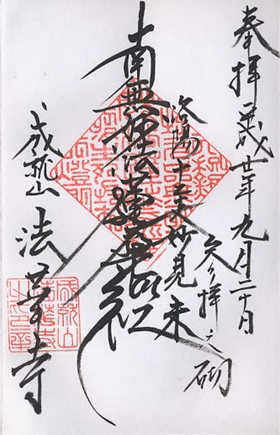 奉拝 平成廿年九月二十日
洛陽十二支妙見 未
拝之砌
南無妙法蓮華経
成就山 法華寺